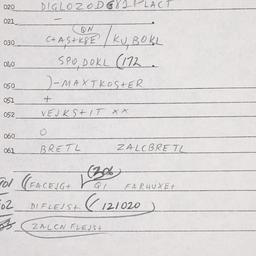 020 DIGLOZODG81PLACT
021 –
030 C+AS+K8E / KU,BOKL
ON
040 SPO,DOKL (172 .
050 )-MAXTKOS+ER
051 +
052 VEJKS+IT XX
060 O
061 BRETL ZALCBRETL
(206)
701 (FACEJG+ Q1 FARHUXE+
702 DIFLEJS+ (121020)
ZALCN FLEJS+